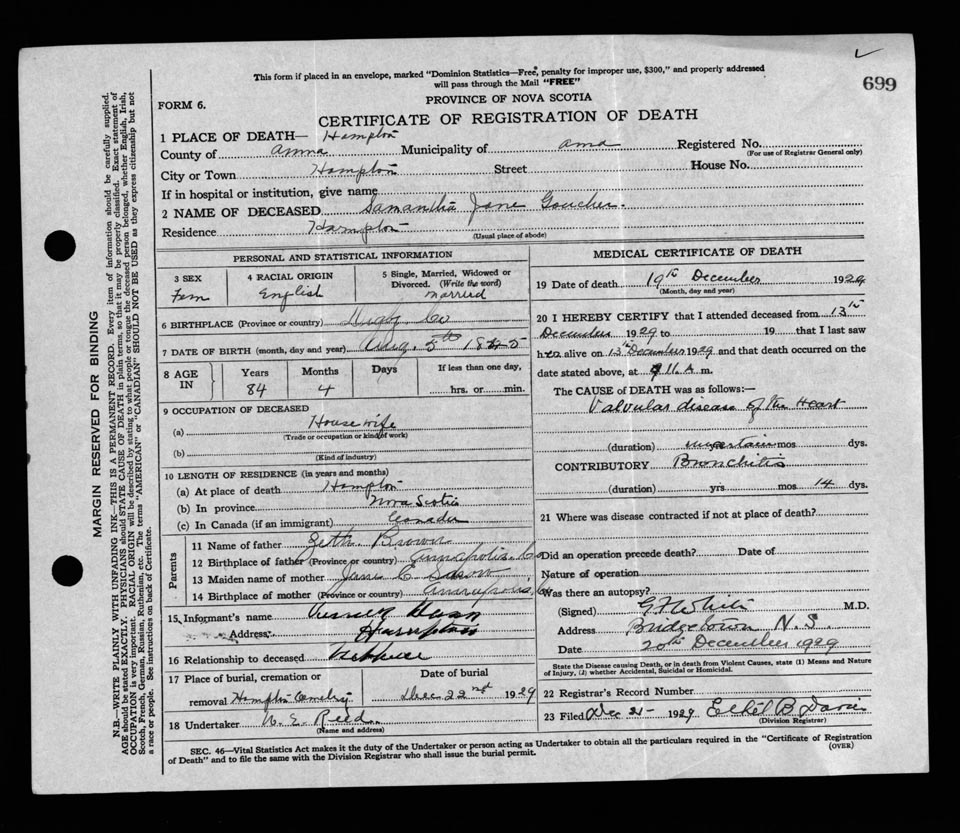 This form if placed in an envelope, marked "Dominion Statistics—Free, penalty for improper use, $300," and properly addressed
will pass through the Mail "FREE"
699
FORM 6.
PROVINCE OF NOVA SCOTIA
CERTIFICATE OF REGISTRATION OF DEATH
1 PLACE OF DEATH— Hampton
County of Anna Municipality of Anna Registered No.
(For use of Registrar General only)
City or Town Hampton Street House No.
If in hospital or institution, give name
2 NAME OF DECEASED Samantha Jane Goucher.
Residence Hampton
(Usual place of abode)
PERSONAL AND STATISTICAL INFORMATION
3 SEX 4 RACIAL ORIGIN 5 Single, Married, Widowed or
Divorced. (Write the word)
Fem English Married
6 BIRTHPLACE (Province or country) Digby Co
7 DATE OF BIRTH (month, day and year) Aug. 5th 1845
8 AGE IN Years Months Days If less than one day,
84 4 hrs. or min.
9 OCCUPATION OF DECEASED
(a) House wife
(Trade or occupation or kind of work)
(b)
(Kind of industry)
10 LENGTH OF RESIDENCE (in years and months)
(a) At place of death Hampton
(b) In province Nova Scotia
(c) In Canada (if an immigrant) Canada
Parents
11 Name of father Zeth Brown
12 Birthplace of father (Province or country) Annapolis Co
13 Maiden name of mother Jane E
14 Birthplace of mother (Province or country) Annapolis Co
15 Informant's name
Address Hampton
16 Relationship to deceased
17 Place of burial, cremation or Date of burial
removal Hampton Cemetry Dec 22nd 1929
18 Undertaker W. E. Reed
(Name and address)
MEDICAL CERTIFICATE OF DEATH
19 Date of death 19th December 1929
(Month, day and year)
20 I HEREBY CERTIFY that I attended deceased from 13th
December 1929 to 19 that I last saw
her alive on 13th December 1929 and that death occurred on the
date stated above, at 11 A m.
The CAUSE OF DEATH was as follows:—
Valvular disease of the Heart
(duration) uncertain mos dys.
CONTRIBUTORY Bronchitis
(duration) yrs mos 14 dys.
21 Where was disease contracted if not at place of death?
Did an operation precede death? Date of
Nature of operation
Was there an autopsy?
(Signed) G F White M.D.
Address Bridgetown N.S.
Date 20th December 1929
State the Disease causing Death, or in death from Violent Causes, state (1) Means and Nature
of Injury, (2) whether Accidental, Suicidal or Homicidal.
22 Registrar's Record Number
23 Filed Dec 21- 1929 Ethel B Davis
(Division Registrar)
SEC. 46—Vital Statistics Act makes it the duty of the Undertaker or person acting as Undertaker to obtain all the particulars required in the "Certificate of Registration
of Death" and to file the same with the Division Registrar who shall issue the burial permit.
(OVER)
MARGIN RESERVED FOR BINDING
N.B.—WRITE PLAINLY WITH UNFADING INK—THIS IS A PERMANENT RECORD. Every item of information should be carefully supplied.
AGE should be stated EXACTLY. PHYSICIANS should STATE CAUSE OF DEATH in plain terms, so that it may be properly classified. Exact statement of
OCCUPATION is very important. RACIAL ORIGIN will be described by stating to what people or tongue the deceased person belonged, whether English, Irish,
Scotch, French, German, Russian, Ruthenian, etc. The terms "AMERICAN" or "CANADIAN" SHOULD NOT BE USED as they express citizenship but not
a race or people. See instructions on back of Certificate.